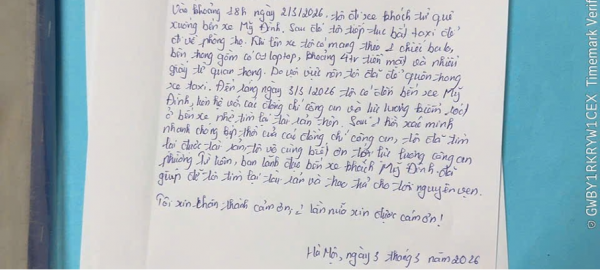 Vào khoảng 18h ngày 2/3/2026. tôi đi xe khách từ quê
xuống bến xe Mỹ Đình. Sau đó tôi tiếp tục bắt taxi để
đi về phòng trọ. Khi lên xe tôi có mang theo 1 chiếc balo,
bên trong gồm có: 1 laptop, khoảng 4tr tiền mặt và nhiều
giấy tờ quan trọng. Do vội vã nên tôi đã để quên trong
xe taxi. Đến sáng ngày 3/3/2026 tôi có đến bến xe Mỹ
Đình, liên hệ với các đồng chí công an và lực lượng
ở bến xe nhờ tìm lại tài sản trên. Sau xác minh
nhanh chóng kịp thời của các đồng chí công an, tôi đã tìm
lại được tài sản, tôi vô cùng biết ơn tới lực lượng công an
phường Từ Liêm, ban lãnh đạo bến xe khách Mỹ Đình đã
giúp đỡ tôi tìm lại tài sản và trao trả cho tôi nguyên vẹn.
Tôi xin chân thành cảm ơn, 1 lần nữa xin được cảm ơn!
Hà Nội, ngày 3 tháng 3 năm 2026
© GWBY1RKRYW1CEX Timemark Verif